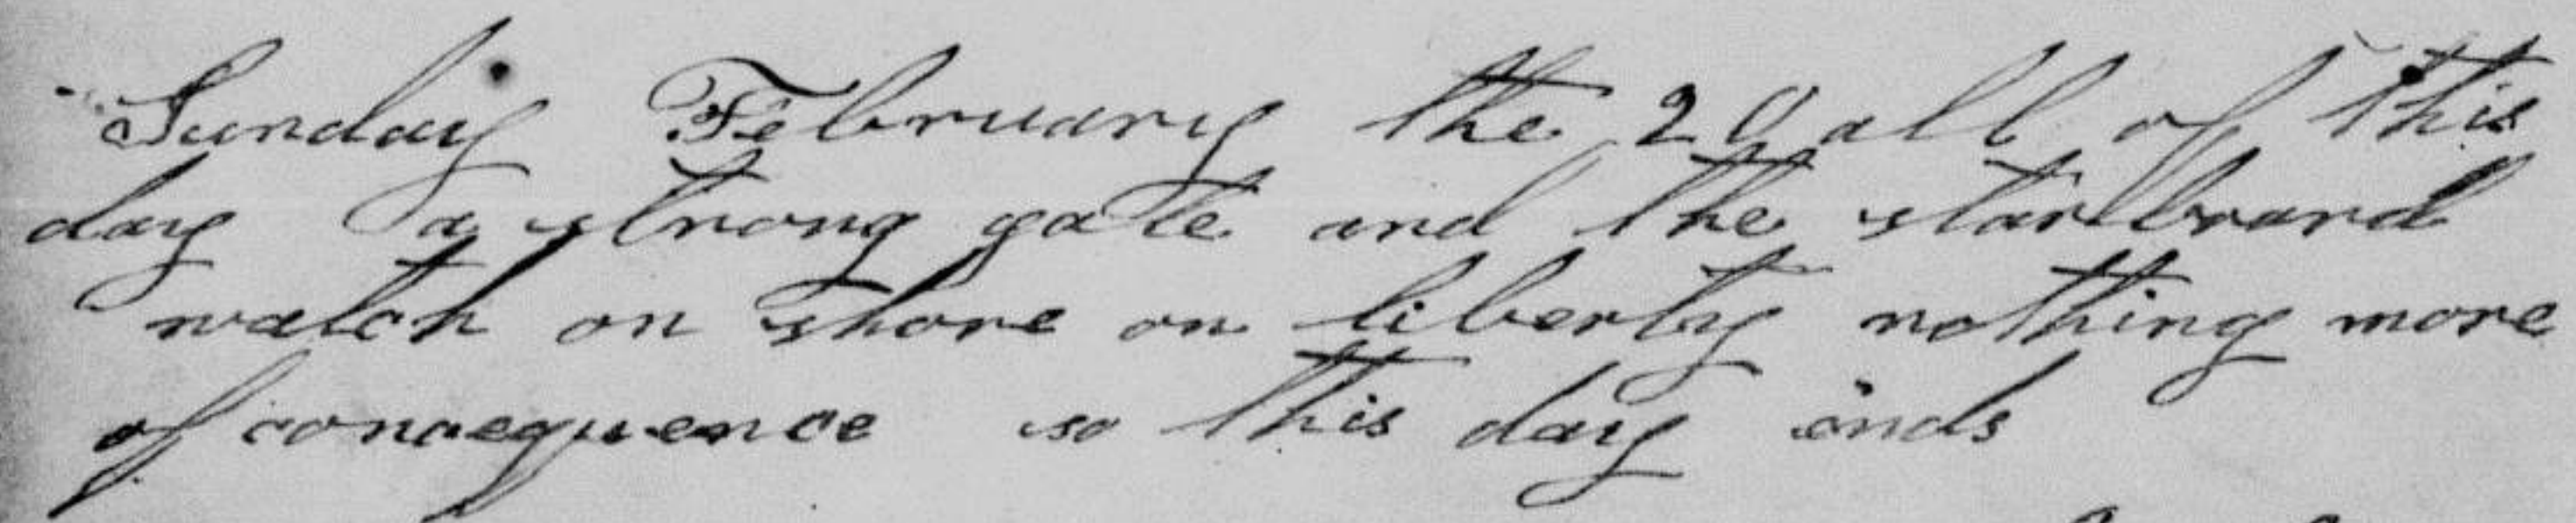 Sunday February the 20 all of this
day a strong gale and the starlboard
watch on shore on liberty nothing more
of consequence so this day ends